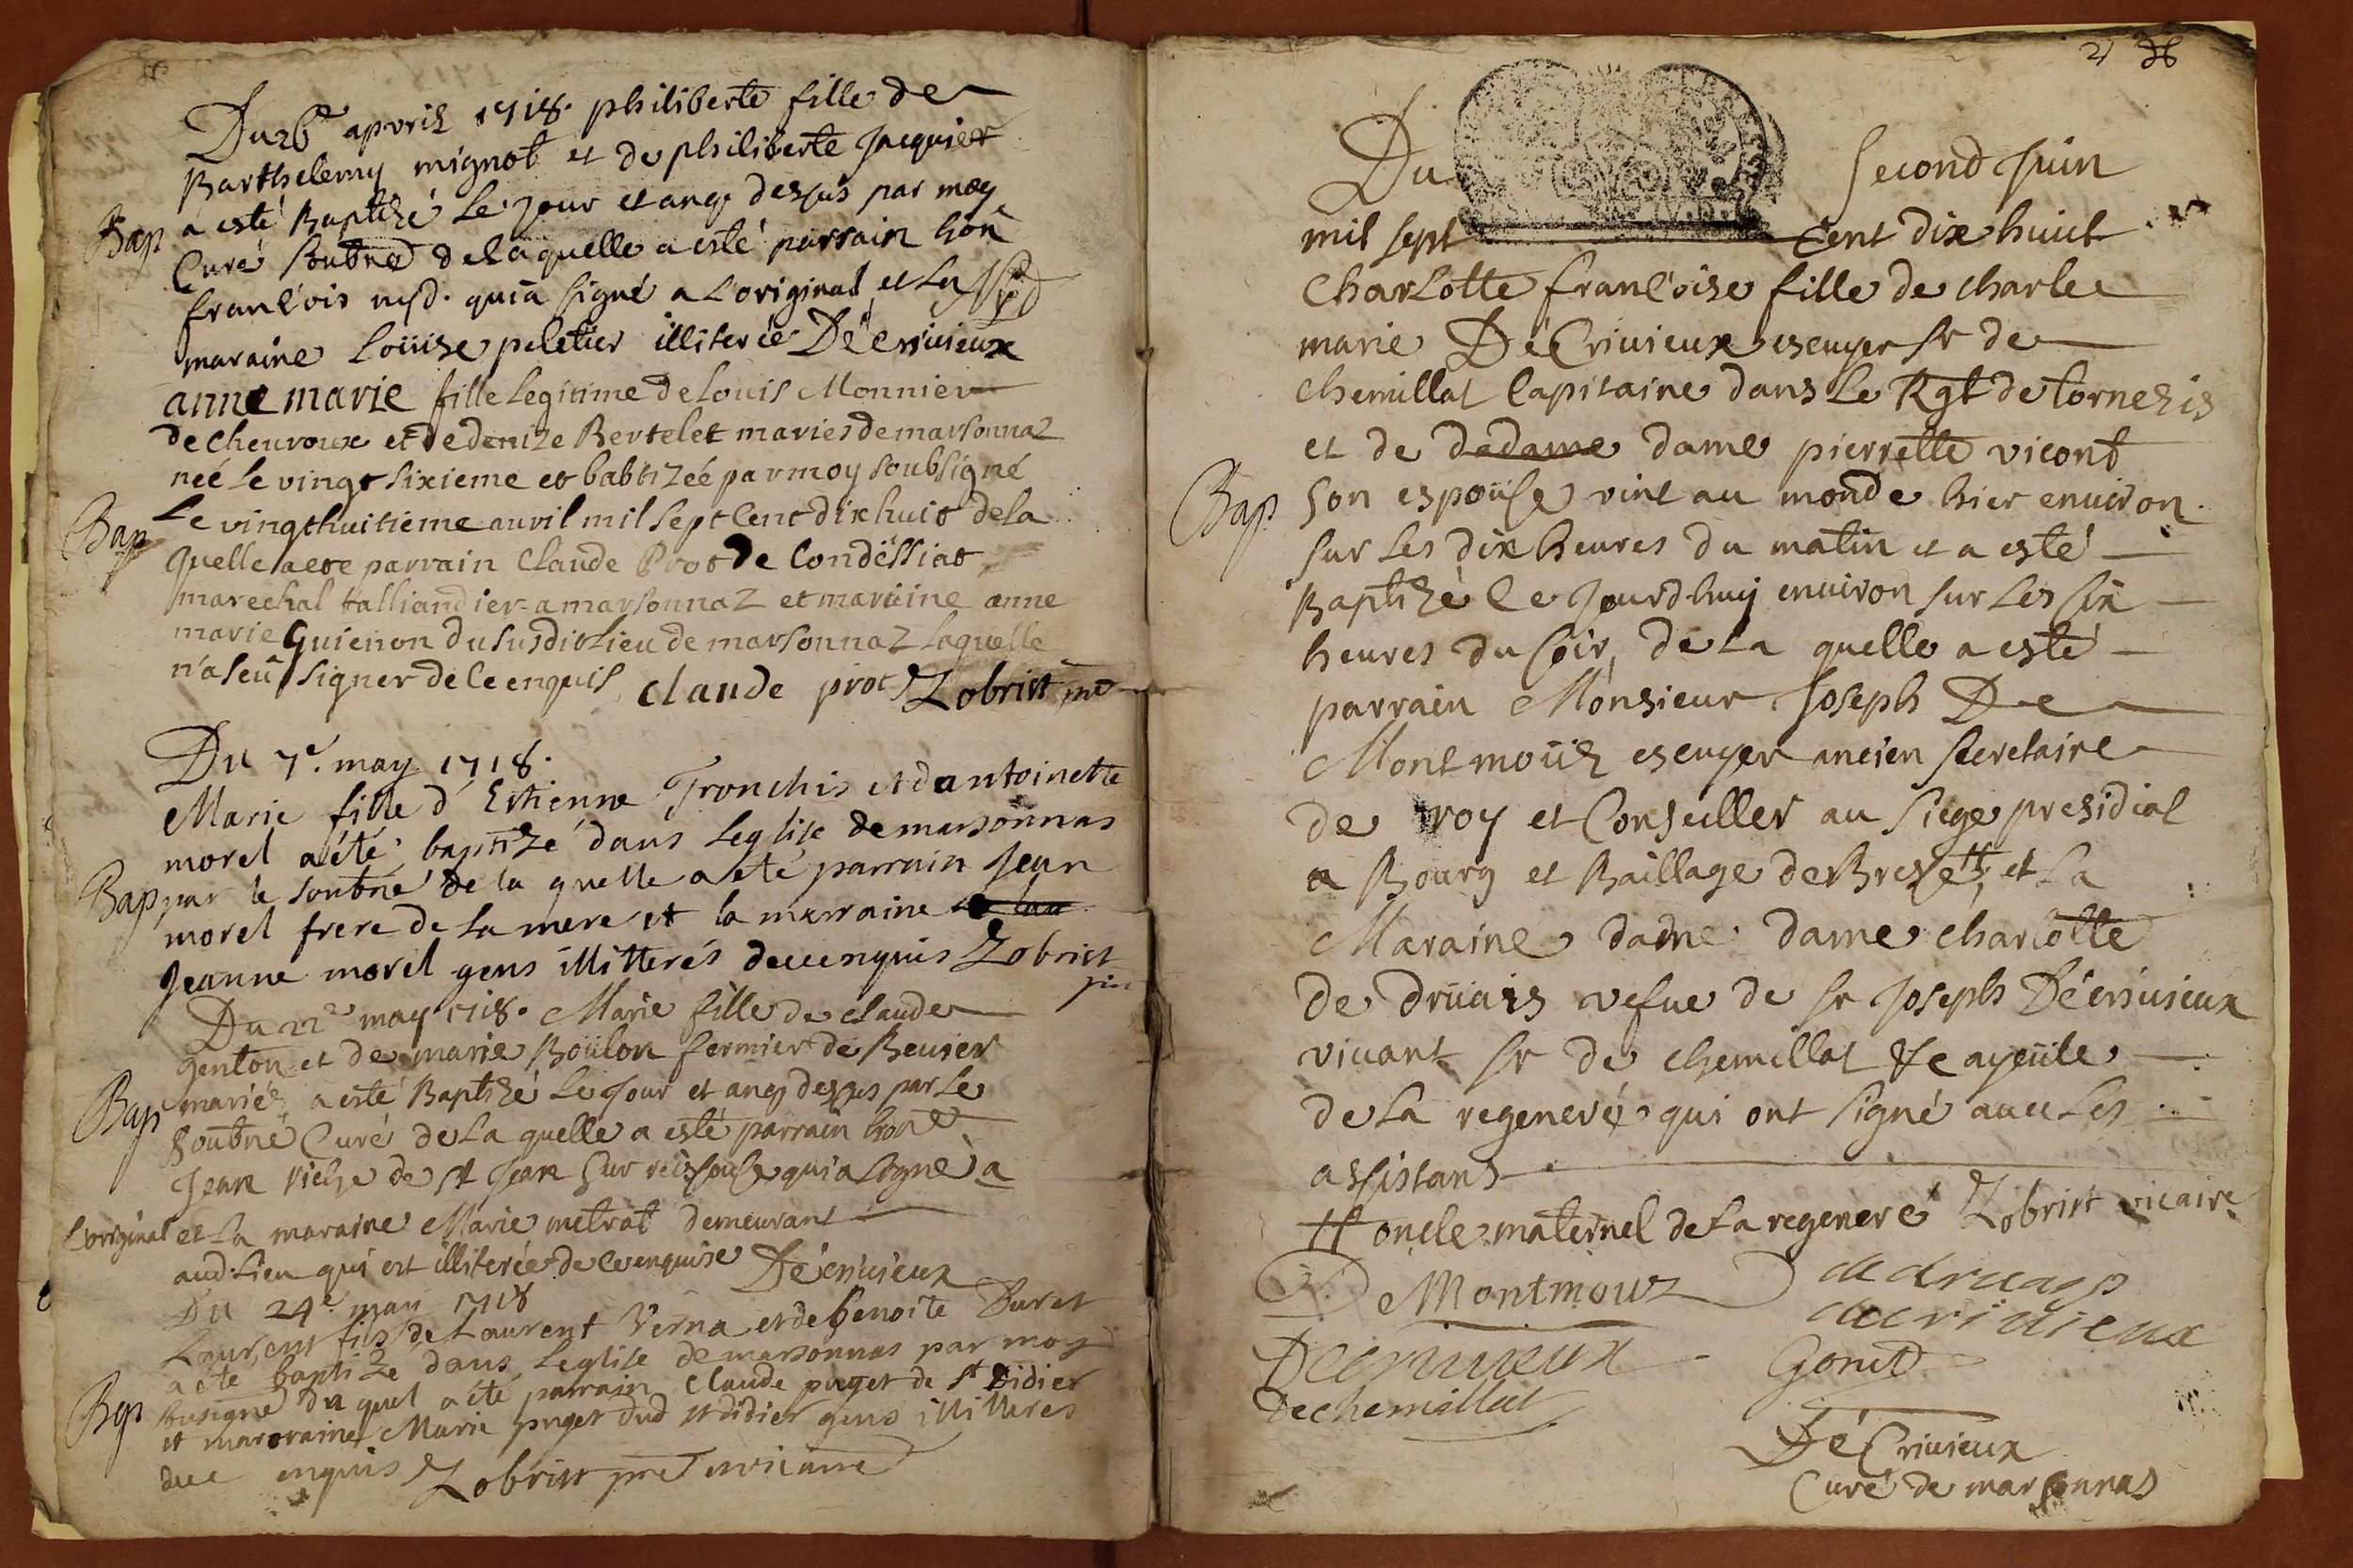 Du 26e apvril 1718. philiberte fille de
Barthelemy mignot et de philiberte Jacquier
Bap a esté Baptizé le jour et an q dessus par moy
Curé soubné de laquelle a esté parrain hon
françois nyd. qui a signé a l'original et la
maraine Loüise peletier illiterée Décriuieux
anne marie fille legitime de Louis Monnier
de cheuroux et de denize Bertelet mariés de marsonnaz
neé le vingt sixieme et babtizeé par moy soubsigné
Bap Le vingthuitieme auril mil sept Cent dix huit de la
quelle a ete parrain Claude Prot de Condéssiat
marechal talliandier a marsonnaz et maraine anne
marie Guienon du susdit Lieu de marsonnaz laquelle
n'a seu signer de ce enquis claude prot Zobrist
Du 7e. may 1718.
Marie fille d'Estienne Tronchis et d'antoinette
morel a été baptizé dans leglise de marsonnas
Bap par le soubné de la quelle a eté parrain Jean
morel frere de la mere et la marraine
Jeanne morel gens illitterés de ce enquis Zobrist
Du 22e may 1718. Marie fille de claude
genton et de marie Boülon fermier de Beuier
Bap mariés, a esté Baptizé le Jour et an q dessus par le
soubné Curé de la quelle a esté parrain hone
Jean viche de st Jean sur reissouse qui a signé a
l'original et la maraine Marie metrat demeurant
aud. lieu qui est illiterée de ce enquise Décriuieux
Du 24e may 1718
Laurent fils de Laurent Verna et de benoite Duret
a eté baptizé dans leglise de marsonnas par moy
Bap sousigné du quel a été parrain claude puget de st Didier
et marraine Marie puget dud st didier gens illitteres
de ce enquis Zobrist pre vicaire
Du second Juin
mil sept Cent dix huict
Charlotte françoise fille de charle
marie DéCriuieux escuyer sr de
chemillat Capitaine dans le Rgt de tornezis
et de dadame dame pierrette vicont
Bap son espoüse vint au monde hier enuiron
sur les dix heures du matin et a esté
Baptizé Ce Jourd-huy enuiron sur les six
heures du soir, de la quelle a esté
parrain Monsieur Joseph De
Montmoüz escuyer ancien secretaire
de roy et Conseiller au siege presidial
a Bourg et Baillage de Bresse, et La
Maraine dame dame charlotte
de drüais vefue de sr Joseph Décriuieux
viuant sr de chemillat et ayeüle
de la regeneré qui ont signé auec les
assistans
oncle maternel de la regeneré Zobrist vicaire
De Montmouz de druays
decriuieux
Decriuieux Gonod
de chemillat
DéCriuieux
Curé de marsonnas